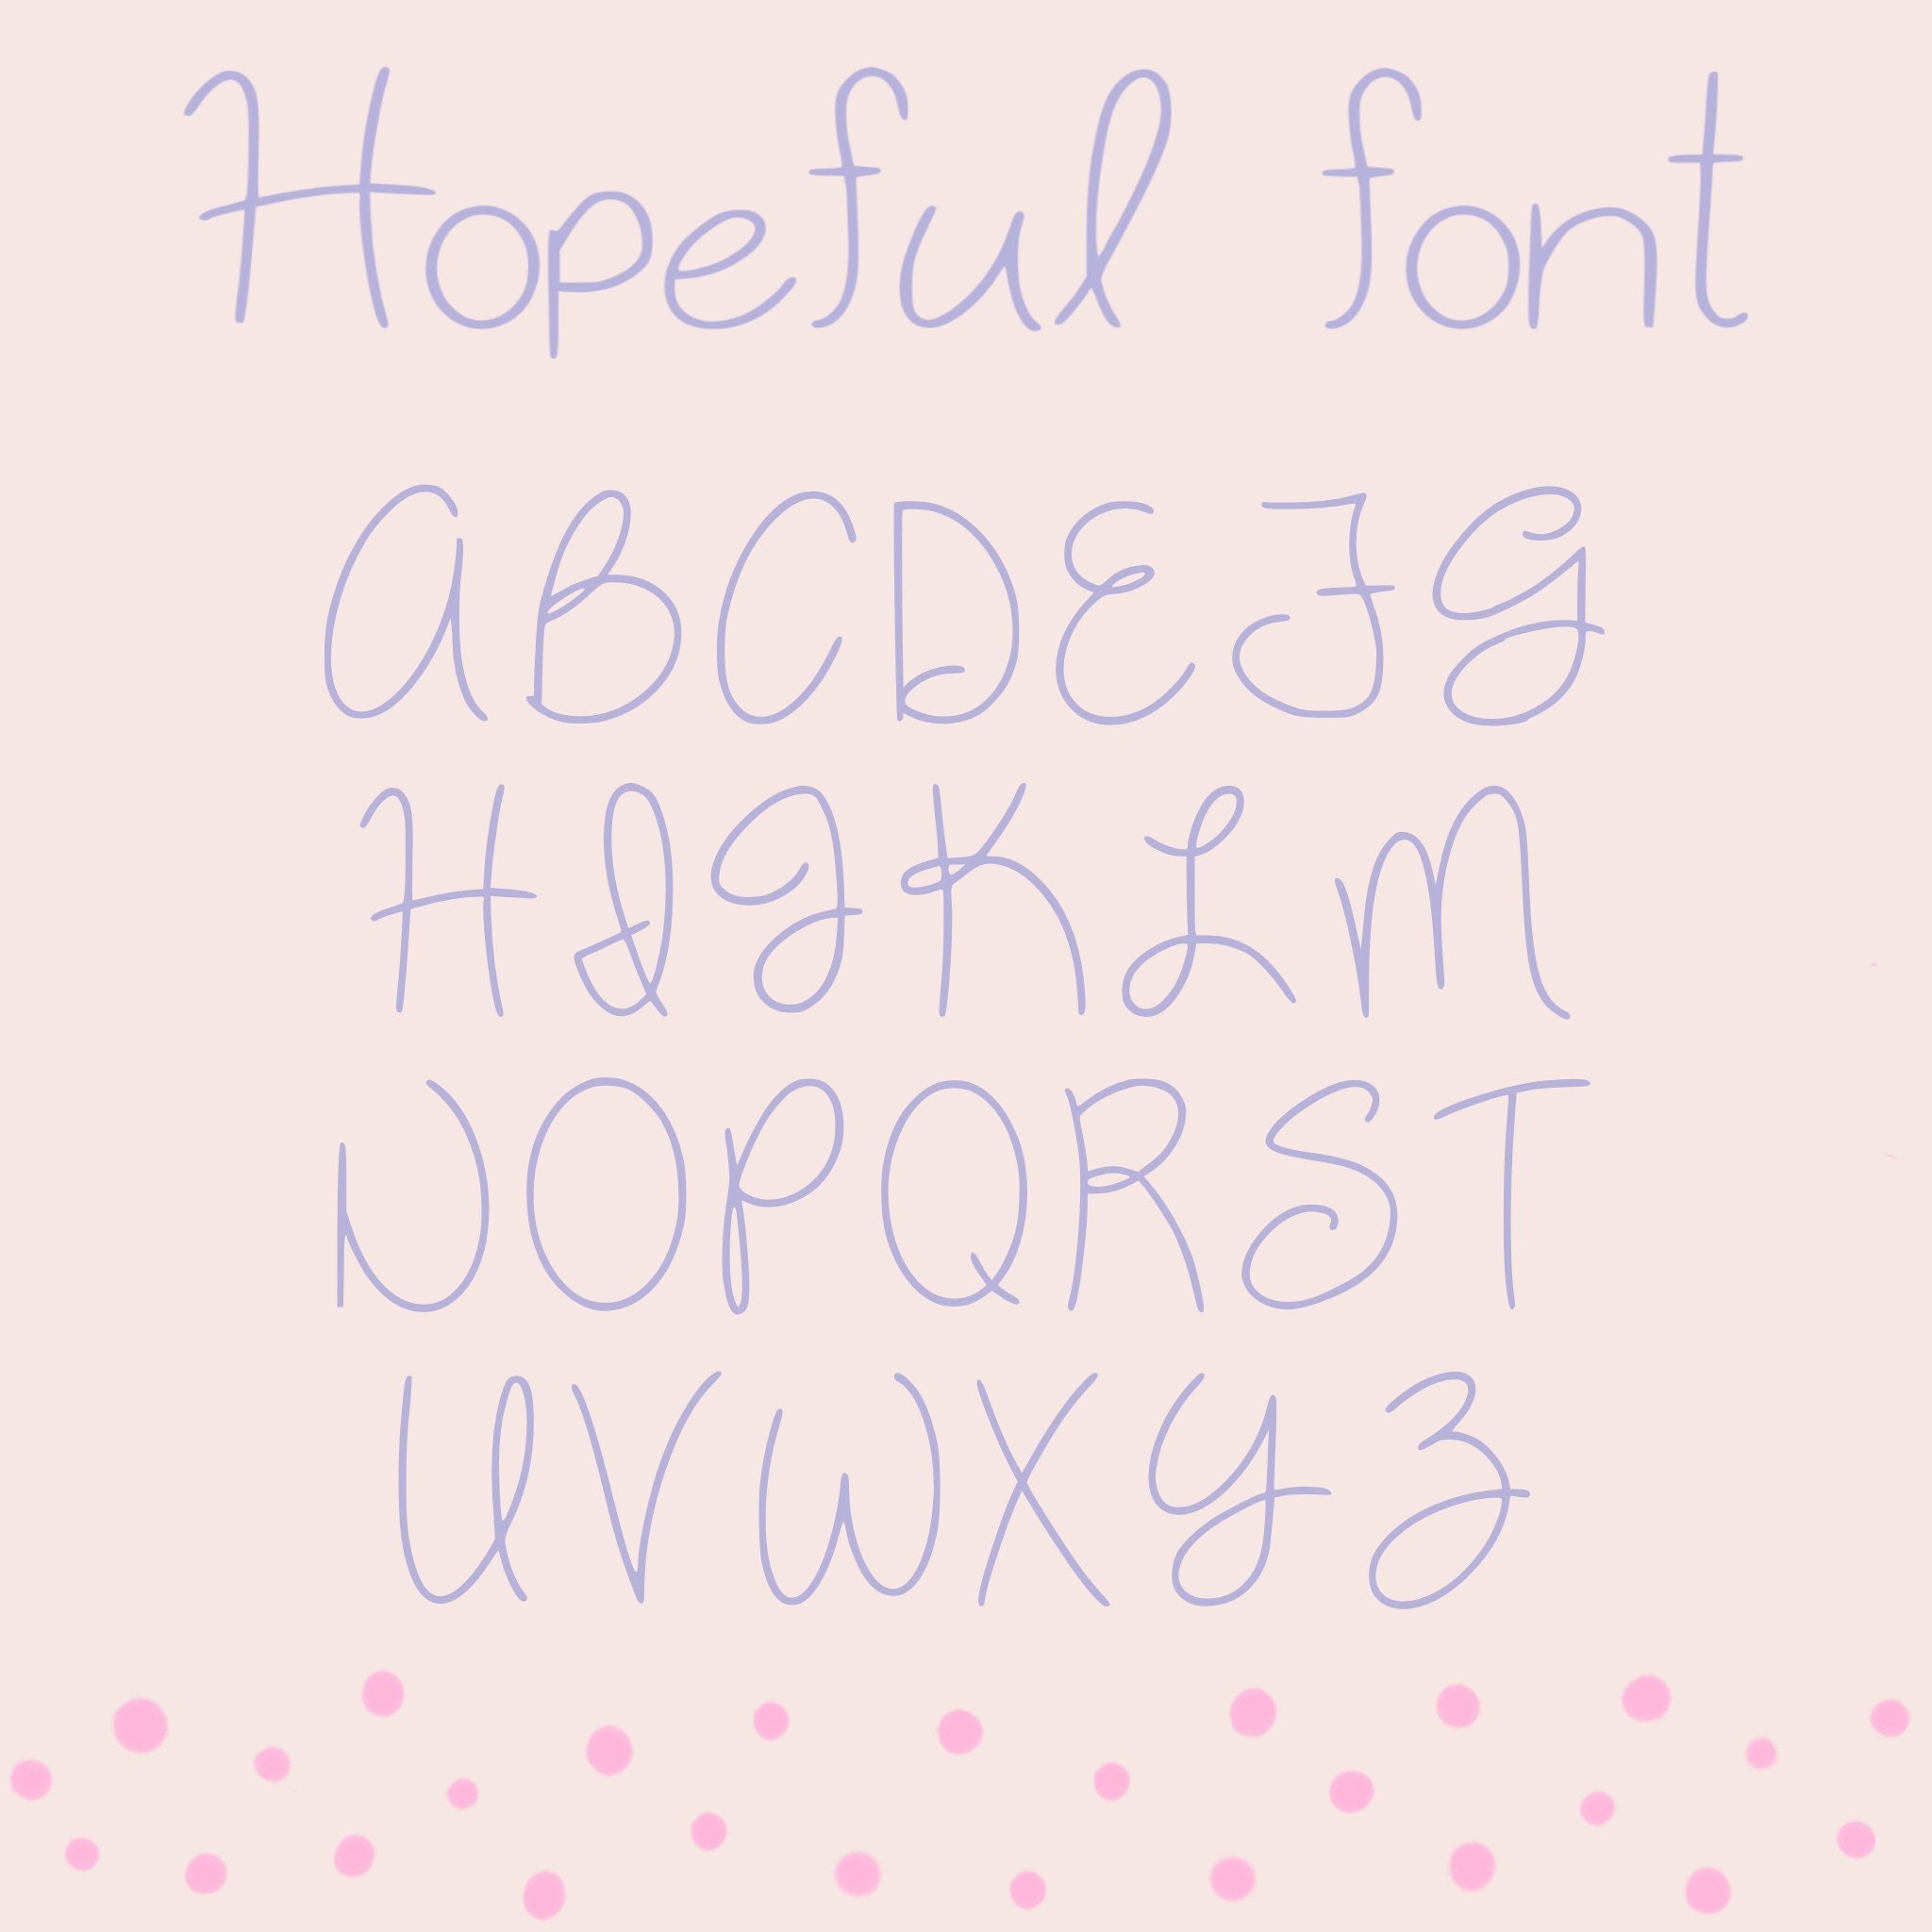 Hopeful font
A B C D E F G
H I J K L M
N O P Q R S T
U V W X Y Z